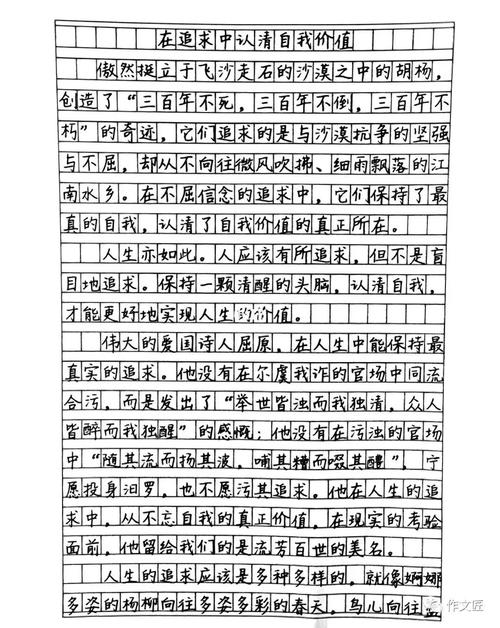 在追求中认清自我价值
傲然挺立于飞沙走石的沙漠之中的胡杨，
创造了“三百年不死，三百年不倒，三百年不
朽”的奇迹，它们追求的是与沙漠抗争的坚强
与不屈，却从不向往微风吹拂、细雨飘落的江
南水乡。在不屈信念的追求中，它们保持了最
真的自我，认清了自我价值的真正所在。
人生亦如此。人应该有所追求，但不是盲
目地追求。保持一颗清醒的头脑，认清自我，
才能更好地实现人生的价值。
伟大的爱国诗人屈原，在人生中能保持最
真实的追求。他没有在尔虞我诈的官场中同流
合污，而是发出了“举世皆浊而我独清，众人
皆醉而我独醒”的感慨；他没有在污浊的官场
中“随其流而扬其波，哺其糟而啜其醴”，宁
愿投身汨罗，也不愿污其追求。他在人生的追
求中，从不忘自我的真正价值，在现实的考验
面前，他留给我们的是流芳百世的美名。
人生的追求应该是多种多样的。就像婀娜
多姿的杨柳向往多姿多彩的春天，鸟儿向往
作文匠